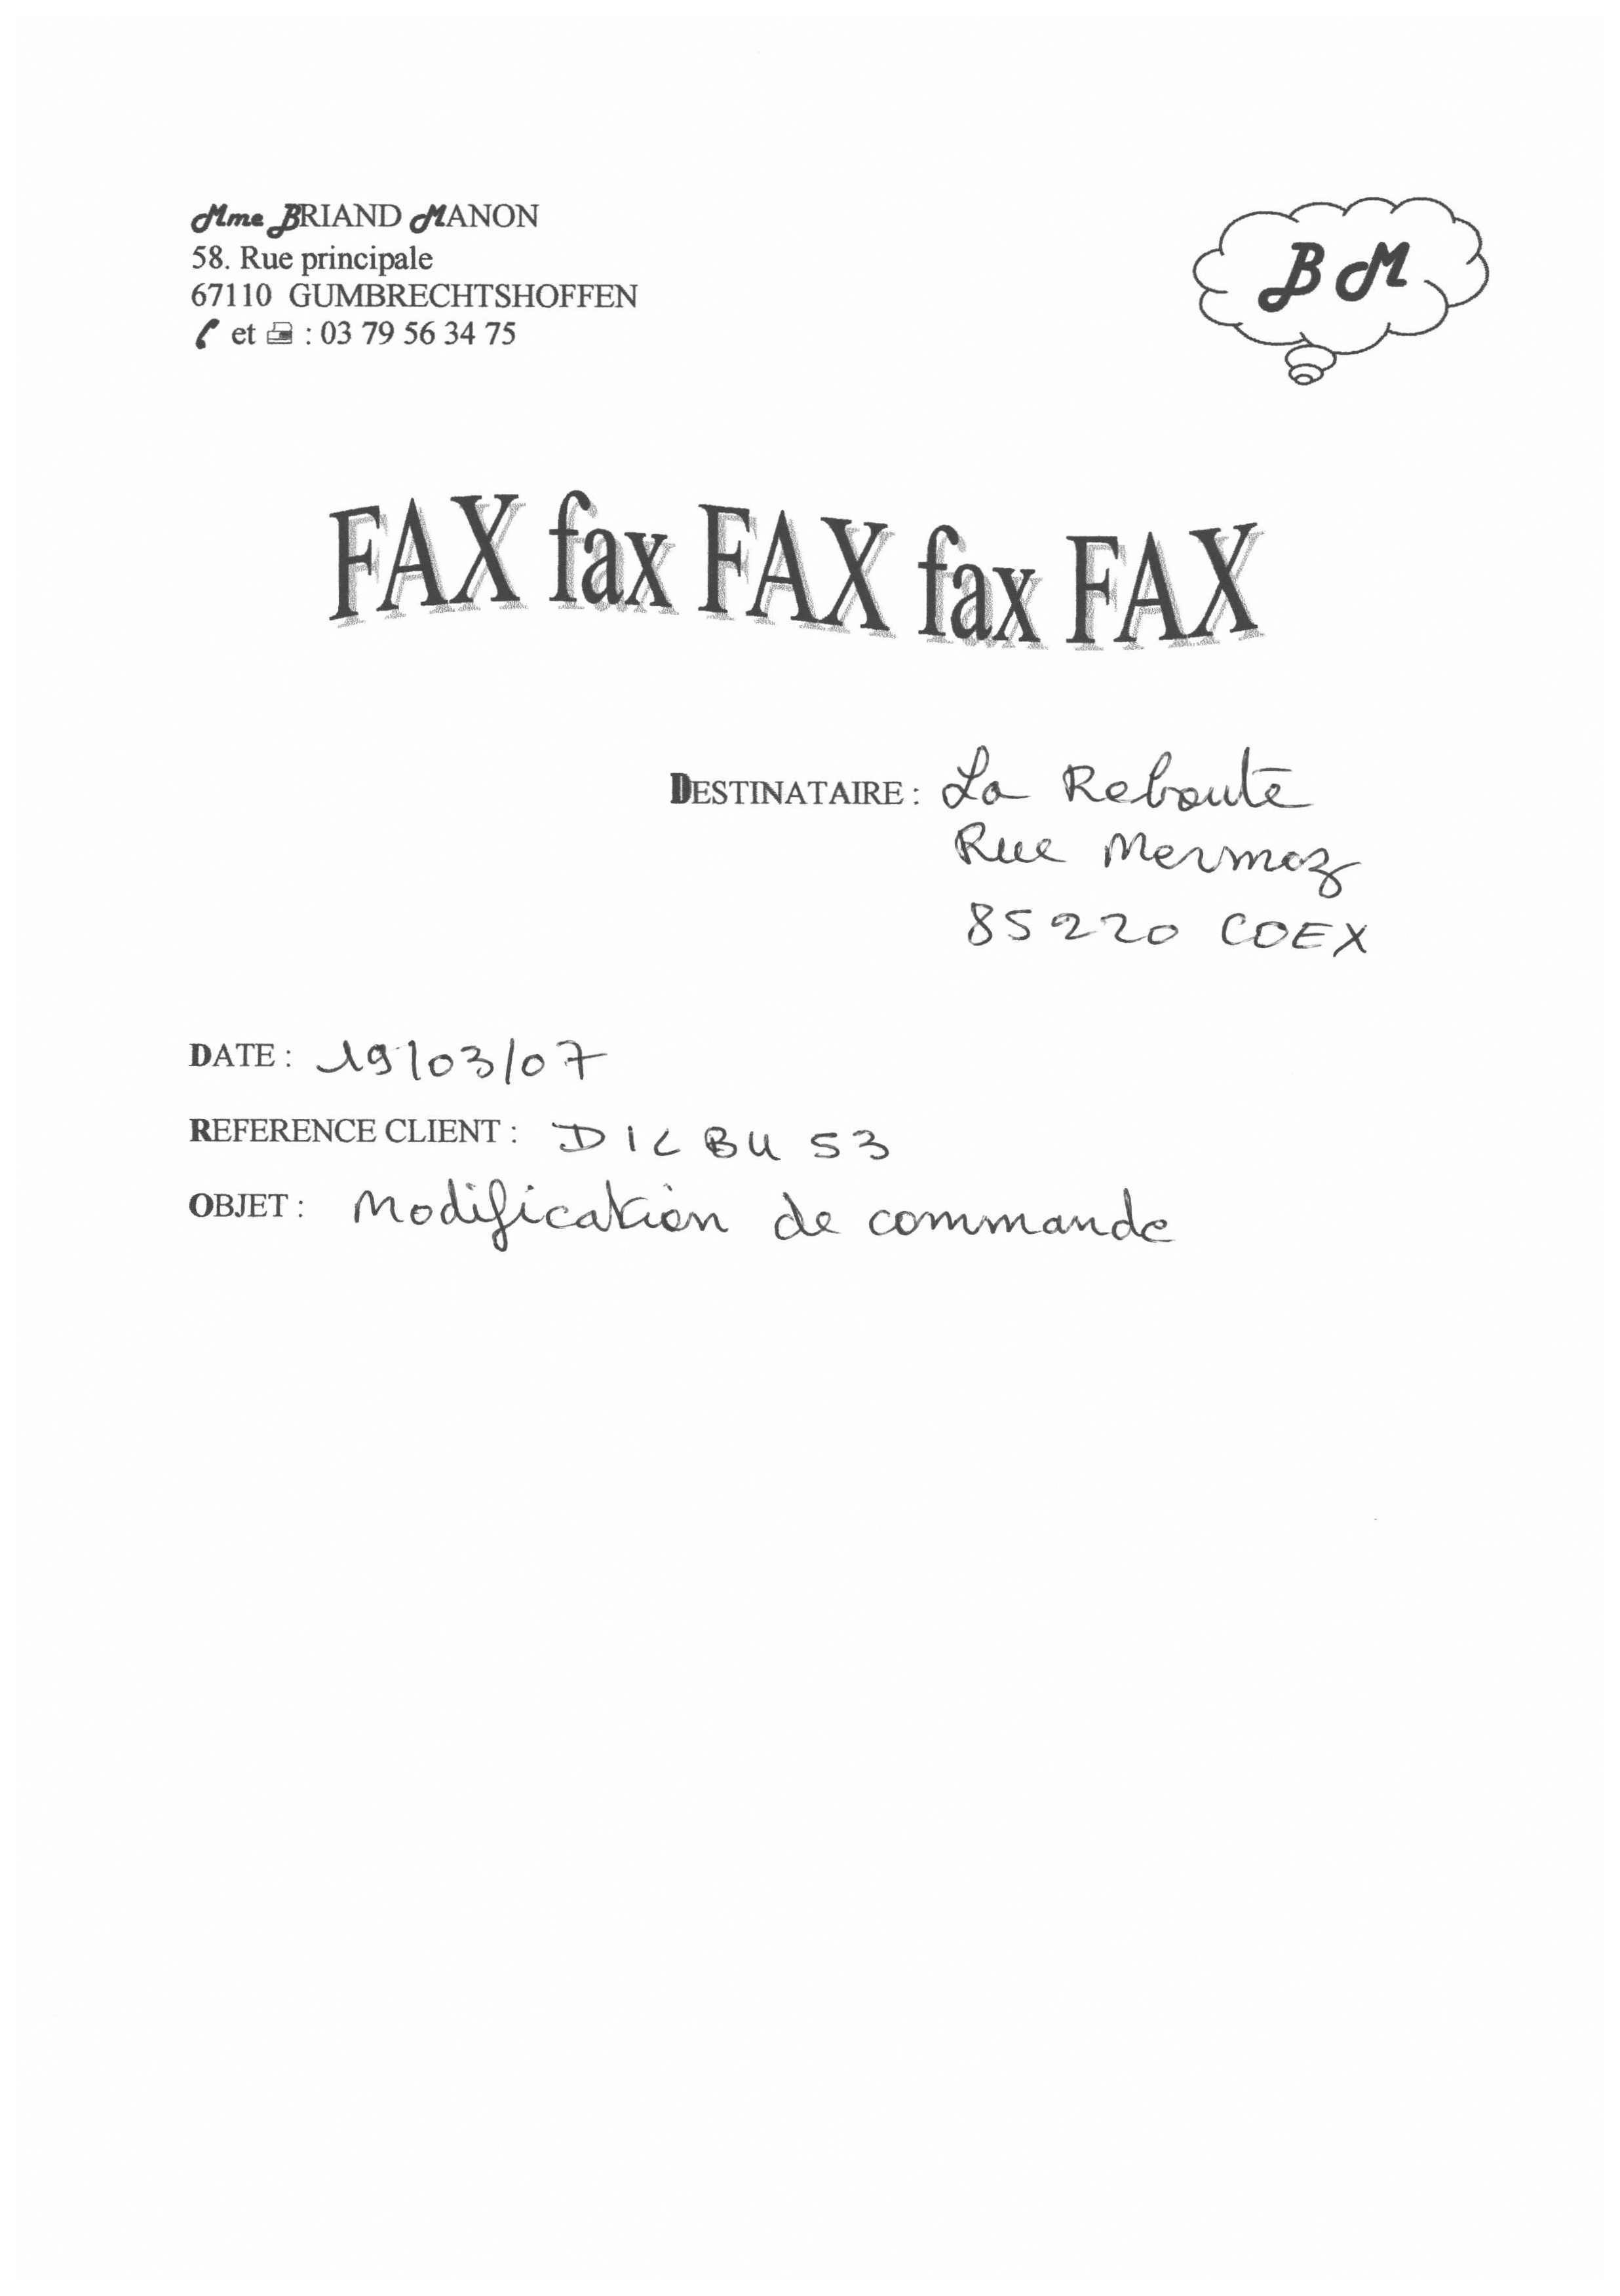 Mme BRIAND MANON
58. Rue principale
67110 GUMBRECHTSHOFFEN
et : 03 79 56 34 75
BM
FAX fax FAX fax FAX
DESTINATAIRE : La Reboute
Rue Mermoz
85220 COEX
DATE : 19/03/07
REFERENCE CLIENT : DILBU 53
OBJET : Modification de commande